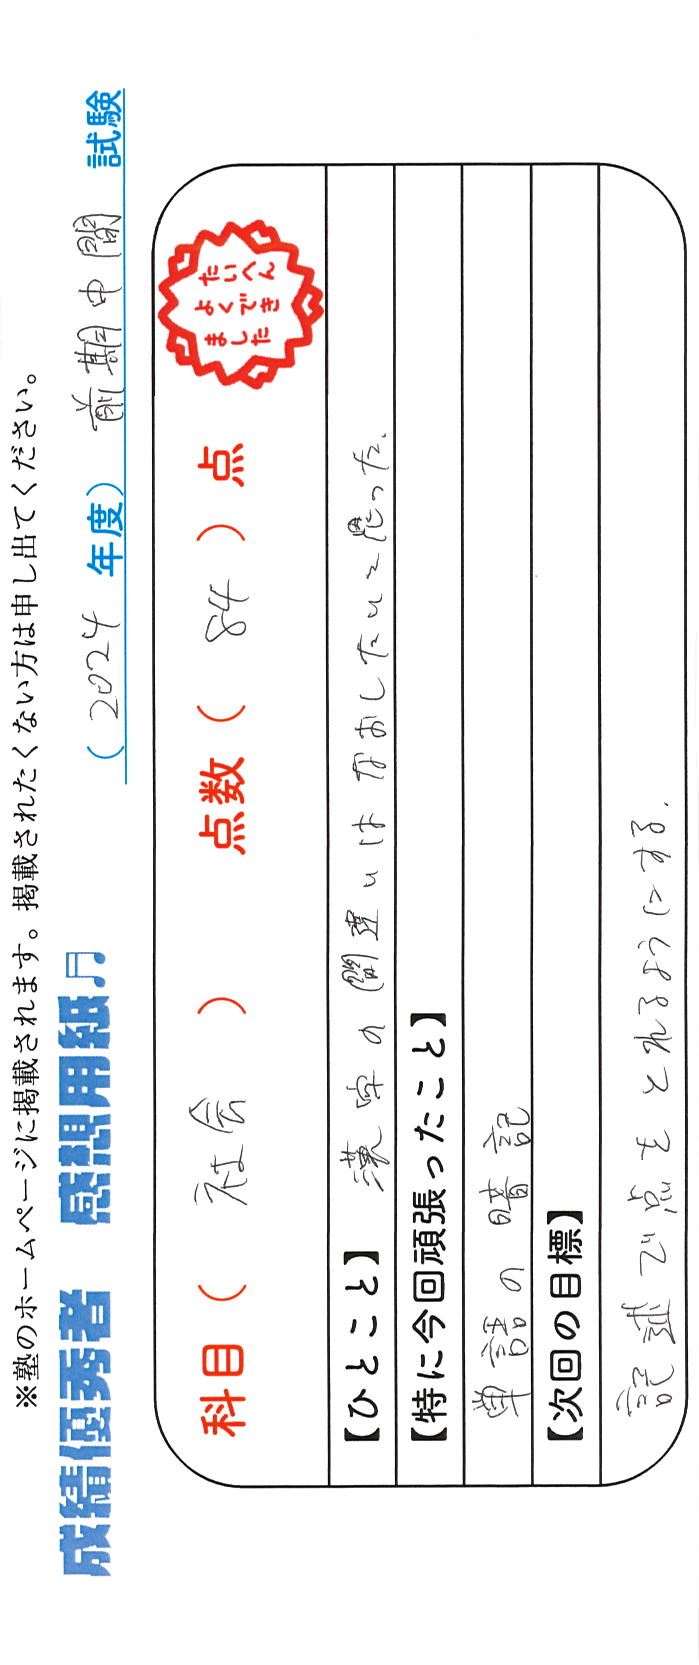 ※塾のホームページに掲載されます。掲載されたくない方は申し出てください。
成績優秀者 感想用紙♫ (2024 年度) 前期中間 試験
科目( 社会 ) 点数( 84 )点
たいへん
よくでき
ました
【ひとこと】 漢字の間違いはなおしたいと思った.
【特に今回頑張ったこと】
単語の暗記
【次回の目標】
記述で点もとれるようにする.